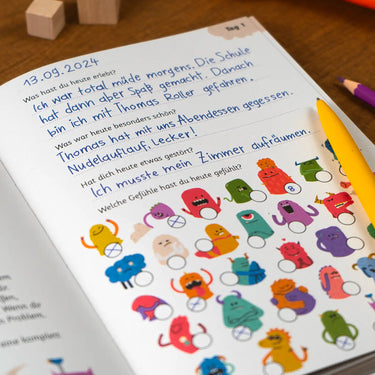 Tag 1
13.09.2024
Was hast du heute erlebt?
Ich war total müde morgens. Die Schule
hat dann aber Spaß gemacht. Danach
bin ich mit Thomas Roller gefahren.
Was war heute besonders schön?
Thomas hat mit uns Abendessen gegessen.
Nudelauflauf. Lecker!
Hat dich heute etwas gestört?
Ich musste mein Zimmer aufräumen.
Welche Gefühle hast du heute gefühlt?
Wenn dir
Problem.
eine komplett